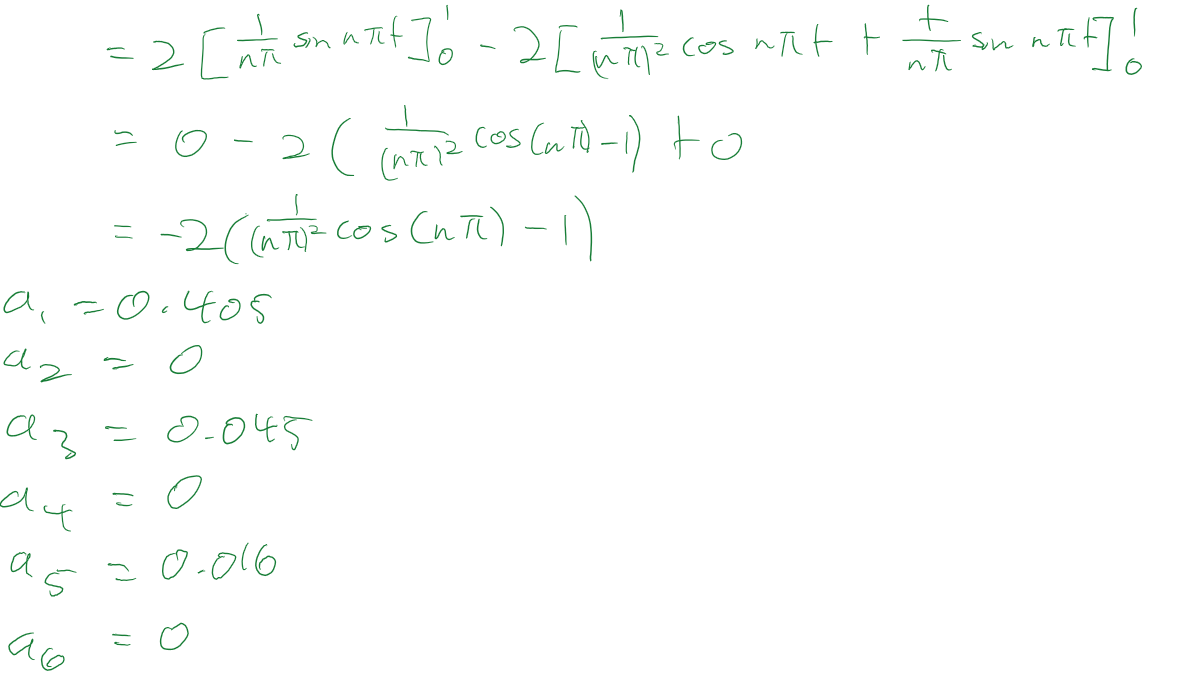 = 2 [ 1/nπ sin nπt ]₀¹ - 2 [ 1/(nπ)² cos nπt + t/nπ sin nπt ]₀¹
= 0 - 2 ( 1/(nπ)² cos (nπ) - 1) + 0
= -2 ( 1/(nπ)² cos (nπ) - 1)
a₁ = 0.405
a₂ = 0
a₃ = 0.045
a₄ = 0
a₅ = 0.016
a₆ = 0